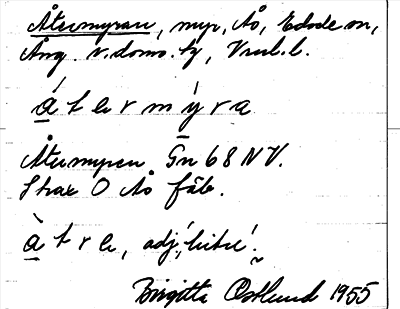 Återmyran, myr, Ås, Edsele sn,
Ång. v. doms. tg, Vrml. l.
å t e r m y r a
Återmyren Gn 68 NV.
Strax O Ås fäb.
å t r e, adj, 'bitre'.
Birgitta Östlund 1955